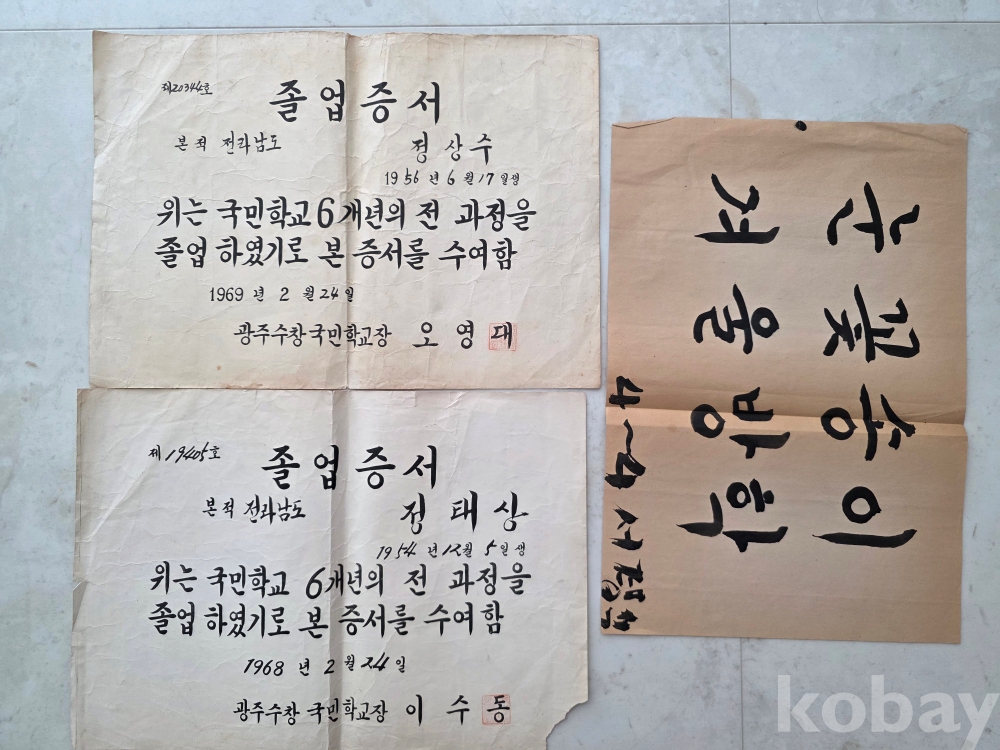 제20344호
졸업증서
본적 전라남도
정상수
1956년 6월 17일생
위는 국민학교 6개년의 전 과정을
졸업 하였기로 본 증서를 수여함
1969년 2월 24일
광주수창국민학교장 오영대
제19405호
졸업증서
본적 전라남도
정태상
1954년 12월 5일생
위는 국민학교 6개년의 전 과정을
졸업 하였기로 본 증서를 수여함
1968년 2월 24일
광주수창국민학교장 이수동
눈꽃송이
겨울방학
4~4 서
kobay